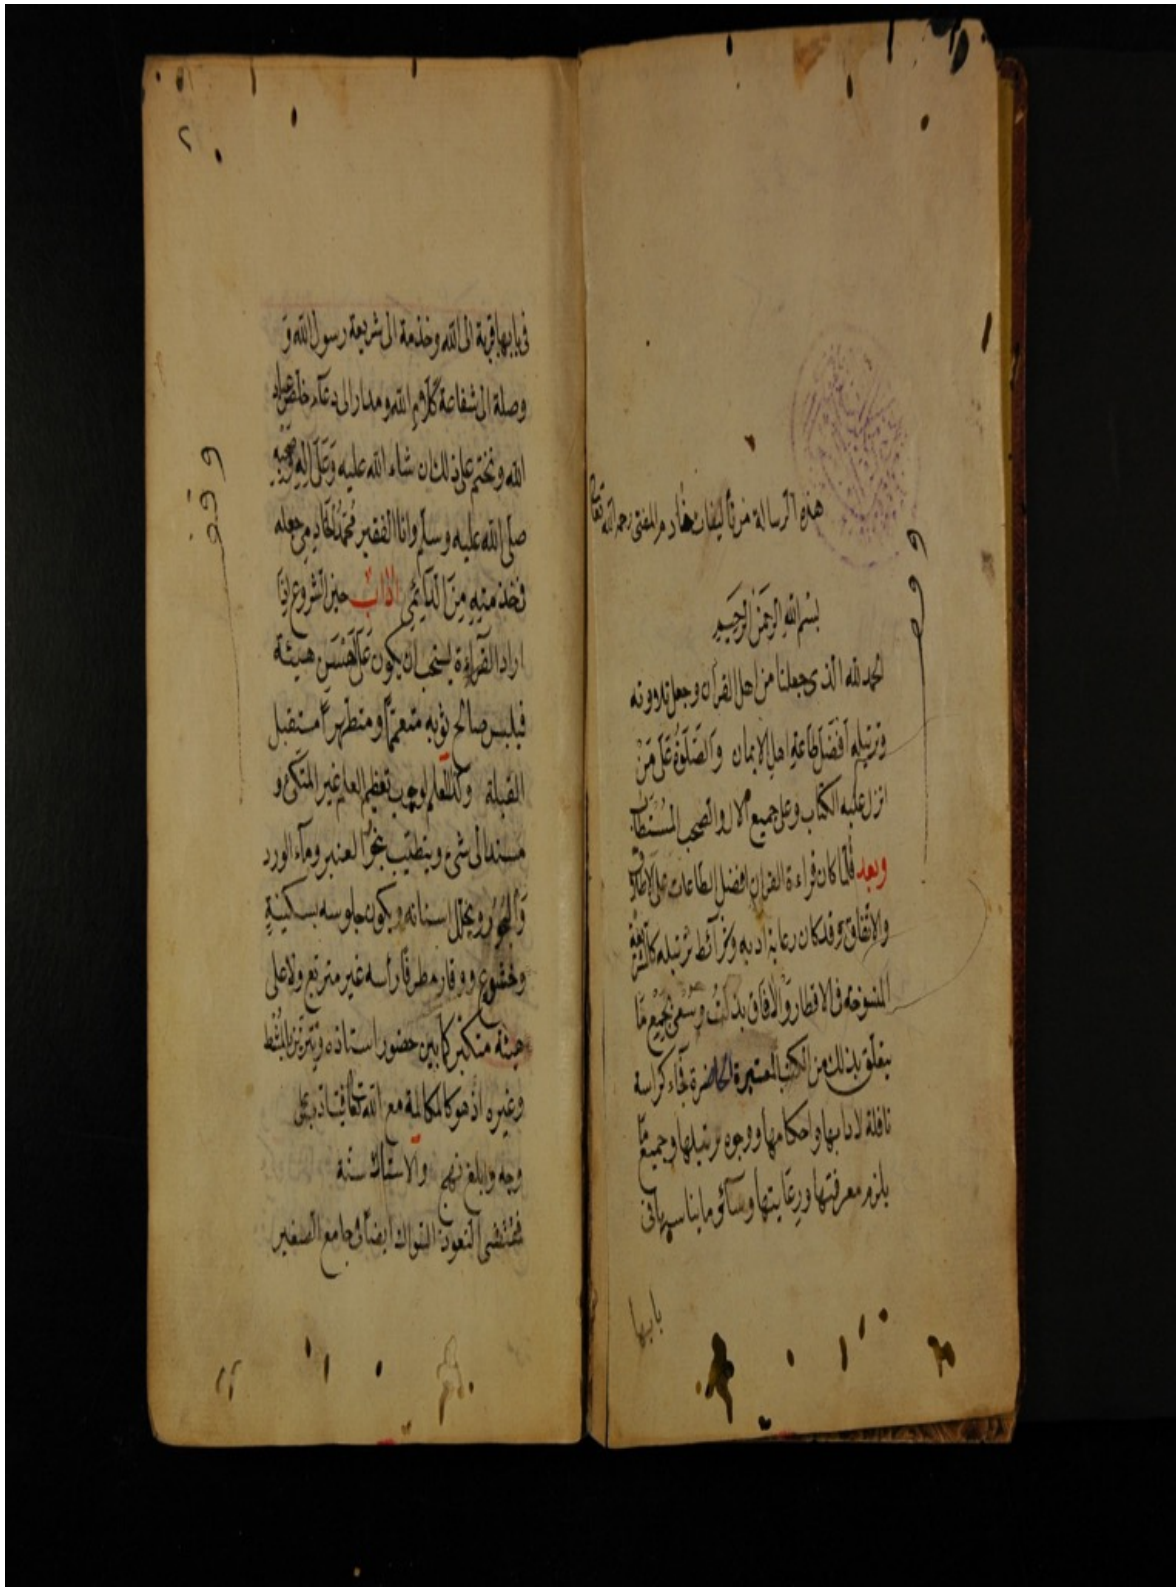 هذه الرسالة من تأليفات خادم المفتى رحمه الله تعالى
بسم الله الرحمن الرحيم
الحمد لله الذى جعلنا من اهل القرآن وجعل تلاوته
وترتيله افضل طاعة اهل الايمان والصلوة على من
انزل عليه الكتاب وعلى جميع الال والصحب
وبعد فلما كان قراءة القران افضل الطاعات على الاطلاق
والاتفاق وقد كان رعاية ادبه وشرائط ترتيله
المنسوخة فى الاقطار والافاق بذلت وسعى بجميع ما
يتعلق بذلك من الكتب المعتبرة الحاضرة فجاء كراسة
نافلة لادابها واحكامها ووجوه ترتيلها وجميع ما
يلزم معرفتها ورعايتها وسائر ما يناسبها فى
بابها
وقف
فى بابها قربة الى الله وخدمة الى شريعة رسول الله و
وصلة الى شفاعة كلام الله ومدار الى دعاء خالص عباد
الله ونختم على ذلك ان شاء الله عليه وعلى اله وصحبه
صلى الله عليه وسلم وانا الفقير محمد الخادم جعله
فى خدمتيه من الدائمى اداب حين الشروع اذا
اراد القراءة يستحب ان يكون على احسن هيئة
فيلبس صالح ثوبه متعمما ومتطهرا مستقبل
القبلة وكذا المعلم لوجوب تعظيم العلم غير المتكئ و
مسندا الى شئ ويتطيب بنحو العنبر وماء الورد
والبخور ويخلل اسنانه ويكون جلوسه بسكينة
وخشوع ووقار مطرقا رأسه غير متربع ولا على
هيئة متكبر كما بين حضور استاذه ويتزين بالمشط
وغيره اذ هو كالمكالمة مع الله تعالى
وجه وابلغ نهج والاستاك سنة
التعوذ السواك ايضا فى جامع الصغير
وقف